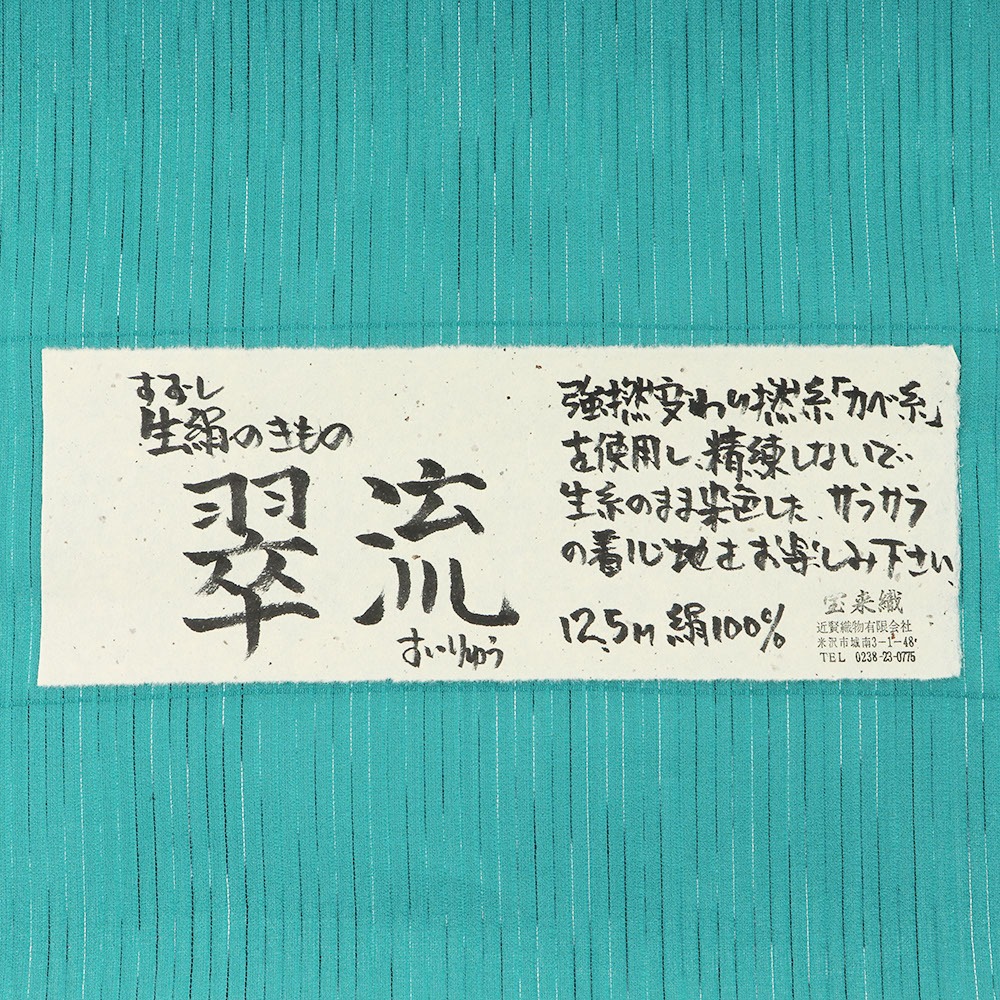 すずし
生絹のきもの
翠流
すいりゅう
強撚変わり撚糸「カベ糸」
を使用し、精練しないで
生糸のまま染色した、サラサラ
の着心地をお楽しみ下さい、
12.5m 絹100%
宝来織
近賢織物有限会社
米沢市城南3-1-48
TEL 0238-23-0775